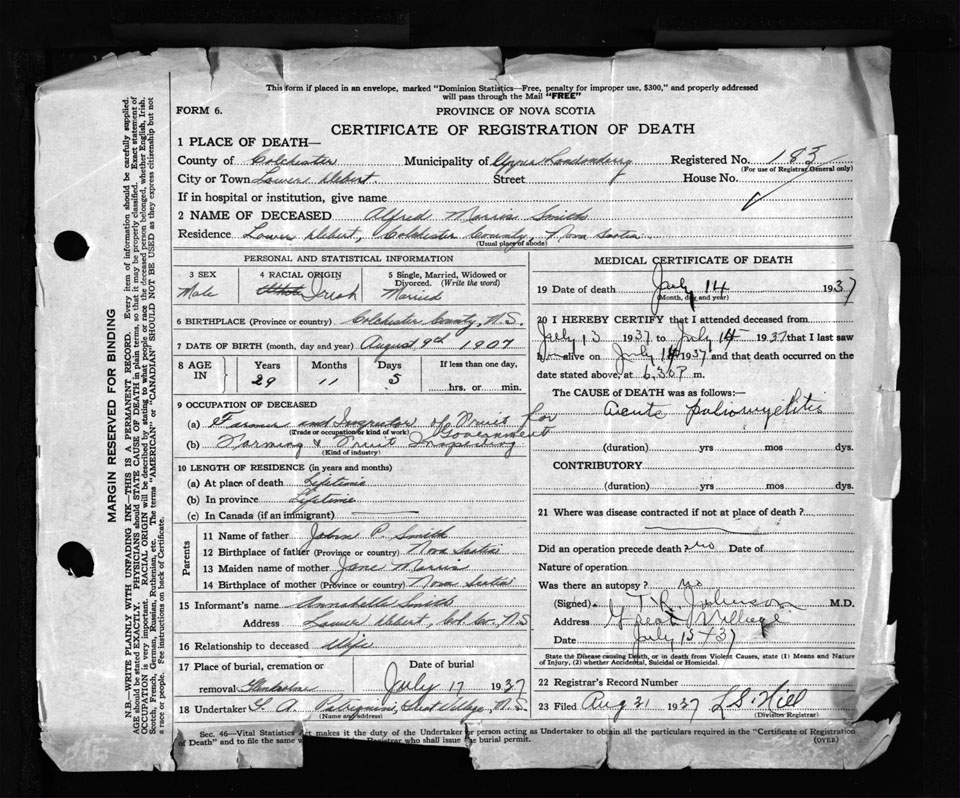 This form if placed in an envelope, marked "Dominion Statistics—Free, penalty for improper use, $300," and properly addressed
will pass through the Mail "FREE"
FORM 6.
PROVINCE OF NOVA SCOTIA
CERTIFICATE OF REGISTRATION OF DEATH
1 PLACE OF DEATH—
County of Colchester Municipality of Londonderry Registered No. 183
(For use of Registrar General only)
City or Town Lower Debert Street House No.
If in hospital or institution, give name
2 NAME OF DECEASED Alfred Morris Smith
Residence Lower Debert, Colchester County, Nova Scotia
(Usual place of abode)
PERSONAL AND STATISTICAL INFORMATION
3 SEX
Male
4 RACIAL ORIGIN
Irish
5 Single, Married, Widowed or
Divorced. (Write the word)
Married
6 BIRTHPLACE (Province or country) Colchester County, N.S.
7 DATE OF BIRTH (month, day and year) August 9th 1907
8 AGE
IN
Years
29
Months
11
Days
5
If less than one day,
hrs. or min.
9 OCCUPATION OF DECEASED
(a) Farmer and Inspector of Fruit for
(Trade or occupation or kind of work) Government
(b) Farming & Fruit Inspecting
(Kind of industry)
10 LENGTH OF RESIDENCE (in years and months)
(a) At place of death Lifetime
(b) In province Lifetime
(c) In Canada (if an immigrant)
Parents
11 Name of father John P. Smith
12 Birthplace of father (Province or country) Nova Scotia
13 Maiden name of mother Jane Morris
14 Birthplace of mother (Province or country) Nova Scotia
15 Informant's name Annabelle Smith
Address Lower Debert, Col. Co., N.S
16 Relationship to deceased Wife
17 Place of burial, cremation or
removal Glenholme
Date of burial
July 17 1937
18 Undertaker Great Village, N.S
(Name and address)
MEDICAL CERTIFICATE OF DEATH
19 Date of death July 14 1937
(Month, day and year)
20 I HEREBY CERTIFY that I attended deceased from
July 13 1937 to July 14 1937 that I last saw
h im alive on July 14 1937 and that death occurred on the
date stated above, at 6.30 P m.
The CAUSE OF DEATH was as follows:—
Acute poliomyelitis
(duration) yrs mos. dys.
CONTRIBUTORY
(duration) yrs. mos. dys.
21 Where was disease contracted if not at place of death?
Did an operation precede death? no Date of
Nature of operation
Was there an autopsy? no
(Signed) T.R. Johnson M.D.
Address Great Village
Date July 15th 37
State the Disease causing Death, or in death from Violent Causes, state (1) Means and Nature
of Injury, (2) whether Accidental, Suicidal or Homicidal.
22 Registrar's Record Number
23 Filed Aug 31 1937 L.S. Hill
(Division Registrar)
Sec. 46—Vital Statistics Act makes it the duty of the Undertaker or person acting as Undertaker to obtain all the particulars required in the "Certificate of Registration
of Death" and to file the same with the Registrar who shall issue the burial permit.
(OVER)
MARGIN RESERVED FOR BINDING
N.B.—WRITE PLAINLY WITH UNFADING INK—THIS IS A PERMANENT RECORD. Every item of information should be carefully supplied.
AGE should be stated EXACTLY. PHYSICIANS should STATE CAUSE OF DEATH in plain terms, so that it may be properly classified. Exact statement of
OCCUPATION is very important. RACIAL ORIGIN will be described by stating to what people or race the deceased person belonged, whether English, Irish,
Scotch, French, German, Russian, Ruthenian, etc. The terms "AMERICAN" or "CANADIAN" SHOULD NOT BE USED as they express citizenship but not
a race or people. Fee instructions on back of Certificate.